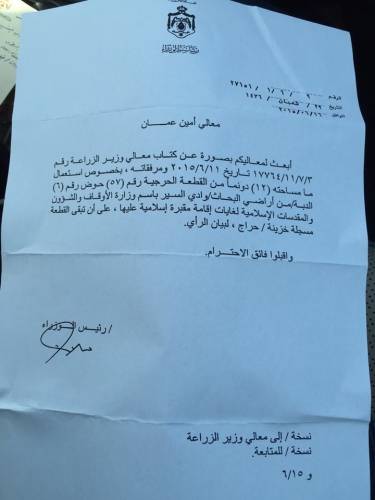 الرقم ٩٠٠ / ١ / ٦ / ٢٧١٥١
التاريخ ٢٩ / شعبان / ١٤٣٦
الموافق ٢٠١٥/٠٦/١٦
معالي أمين عمـــان
أبعث لمعاليكم بصورة عن كتاب معالي وزير الزراعة رقم
١٧٧٦٤/١١/٧/٣ تاريخ ٢٠١٥/٦/١١ ومرفقاته، بخصوص استعمال
ما مساحته (١٢) دونماً من القطعة الحرجية رقم (٥٧) حوض رقم (٦)
الدبة/من أراضي البحاث/وادي السير باسم وزارة الأوقاف والشؤون
والمقدسات الإسلامية لغايات إقامة مقبرة إسلامية عليها، على أن تبقى القطعة
مسجلة خزينة/ حراج، لبيان الرأي.
واقبلوا فائق الاحترام،
/ رئيس الـــوزراء
نسخة / إلى معالي وزير الزراعة
نسخة / للمتابعة.
و ٦/١٥